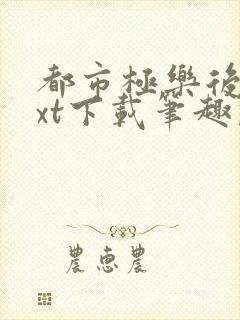 都市極樂後
xt下載筆趣
農惠農